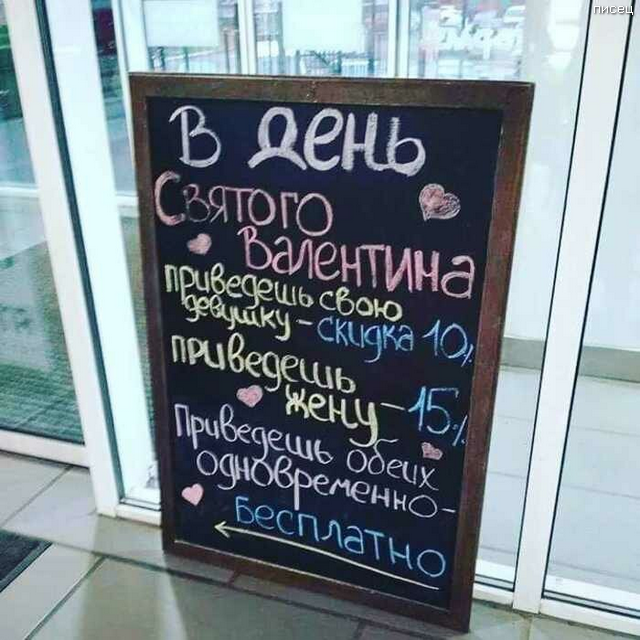 писец
В день
Святого
Валентина
приведешь свою
девушку – скидка 10%
приведешь
жену – 15%
Приведешь обеих
одновременно –
бесплатно